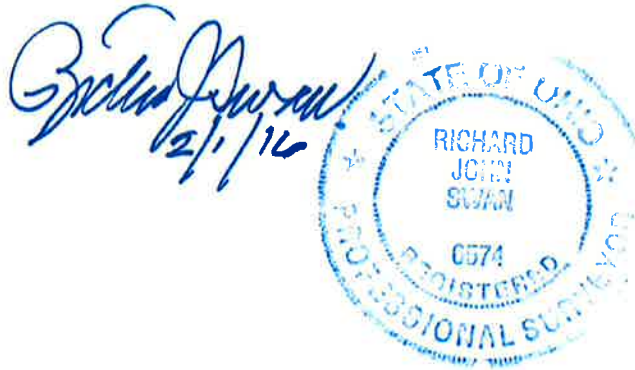 Richard J Swan
2/1/16
STATE OF OHIO
RICHARD
JOHN
SWAN
REGISTERED
PROFESSIONAL SURVEYOR